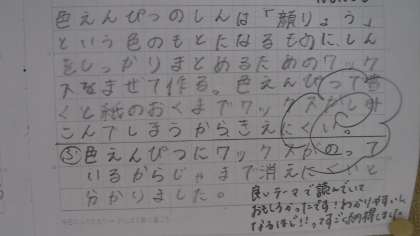 色えんぴつのしんは「顔りょう」
という色のもとになるものに、しん
をしっかりまとめるためのワック
スをまぜて作る。色えんぴつって書
くと紙のおくまでワックスがしみ
こんでしまうからきえにくい。
⑤色えんぴつにワックスがのって
いるからじゃまで消えにくいと
分かりました。
良いテーマで読んでいて
おもしろかったです!わかりやすいし、
なるほど!!ってすごく納得しました